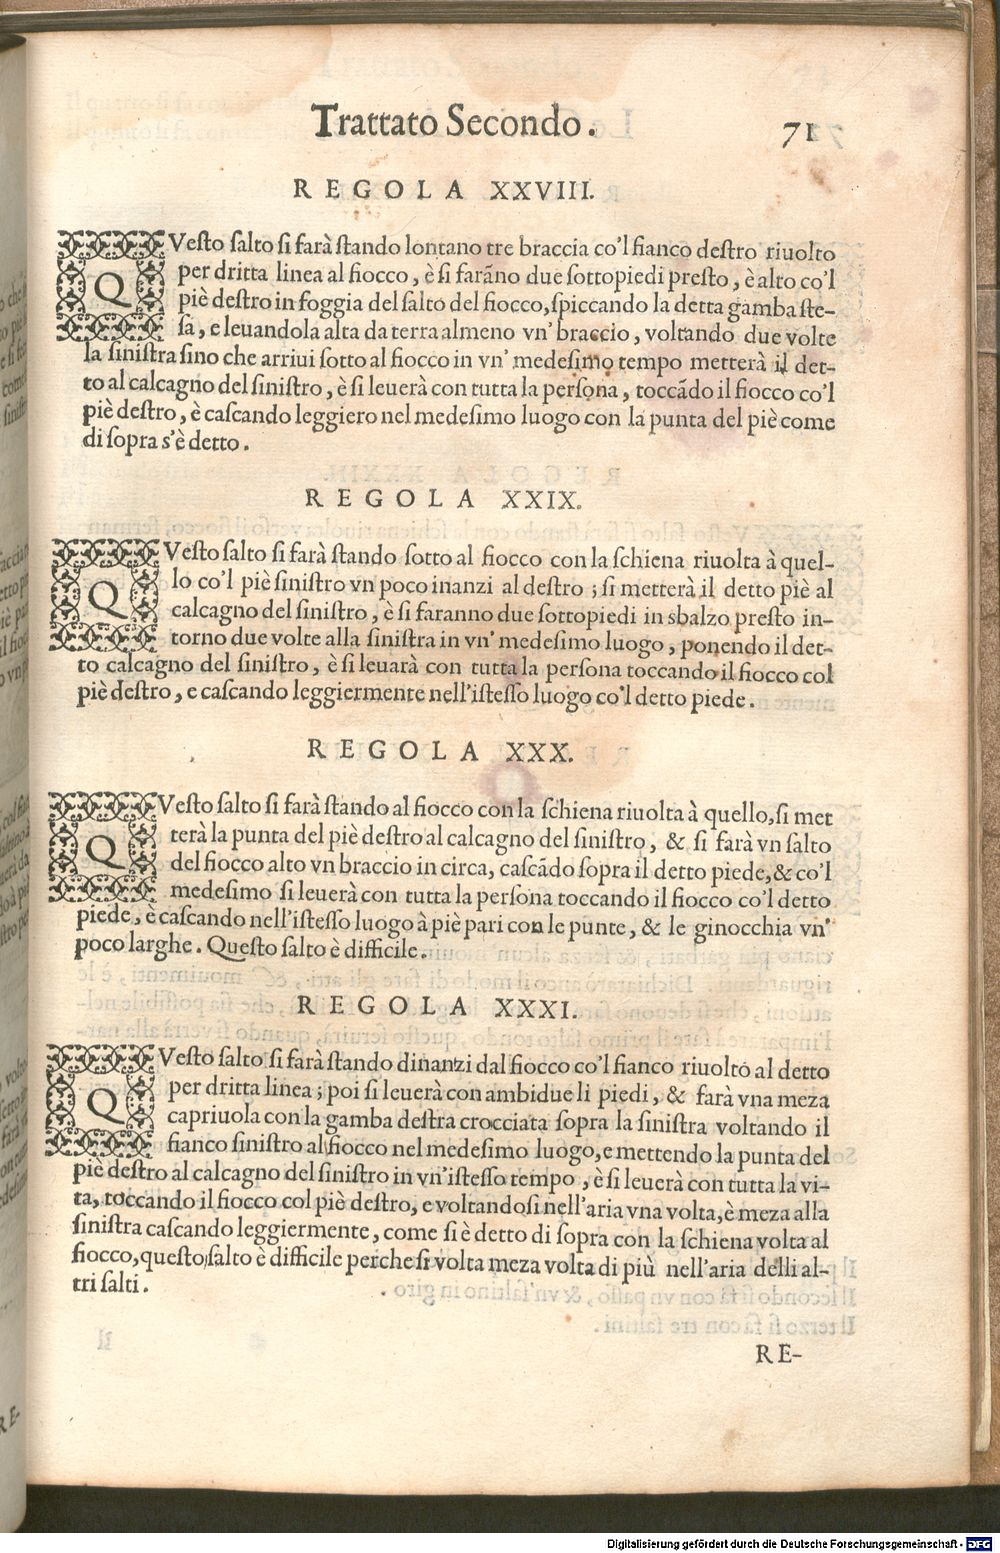 Trattato Secondo. 71
REGOLA XXVIII.
QVesto salto si farà stando lontano tre braccia co'l fianco destro riuolto
per dritta linea al fiocco, è si farãno due sottopiedi presto, è alto co'l
piè destro in foggia del salto del fiocco, spiccando la detta gamba ste-
sa, e leuandola alta da terra almeno vn' braccio, voltando due volte
la sinistra sino che arriui sotto al fiocco in vn' medesimo tempo metterà il det-
to al calcagno del sinistro, è si leuerà con tutta la persona, toccãdo il fiocco co'l
piè destro, è cascando leggiero nel medesimo luogo con la punta del piè come
di sopra s'è detto.
REGOLA XXIX.
QVesto salto si farà stando sotto al fiocco con la schiena riuolta à quel-
lo co'l piè sinistro vn poco inanzi al destro; si metterà il detto piè al
calcagno del sinistro, è si faranno due sottopiedi in sbalzo presto in-
torno due volte alla sinistra in vn' medesimo luogo, ponendo il det-
to calcagno del sinistro, è si leuarà con tutta la persona toccando il fiocco col
piè destro, e cascando leggiermente nell'istesso luogo co'l detto piede.
REGOLA XXX.
QVesto salto si farà stando al fiocco con la schiena riuolta à quello, si met
terà la punta del piè destro al calcagno del sinistro, & si farà vn salto
del fiocco alto vn braccio in circa, cascãdo sopra il detto piede, & co'l
medesimo si leuerà con tutta la persona toccando il fiocco co'l detto
piede, e cascando nell'istesso luogo à piè pari con le punte, & le ginocchia vn'
poco larghe. Questo salto è difficile.
REGOLA XXXI.
QVesto salto si farà stando dinanzi dal fiocco co'l fianco riuolto al detto
per dritta linea; poi si leuerà con ambidue li piedi, & farà vna meza
capriuola con la gamba destra crocciata sopra la sinistra voltando il
fianco sinistro al fiocco nel medesimo luogo, e mettendo la punta del
piè destro al calcagno del sinistro in vn'istesso tempo, è si leuerà con tutta la vi-
ta, toccando il fiocco col piè destro, e voltandosi nell'aria vna volta, è meza alla
sinistra cascando leggiermente, come si è detto di sopra con la schiena volta al
fiocco, questo salto è difficile perche si volta meza volta di più nell'aria delli al-
tri salti.
RE-
Digitalisierung gefördert durch die Deutsche Forschungsgemeinschaft - DFG